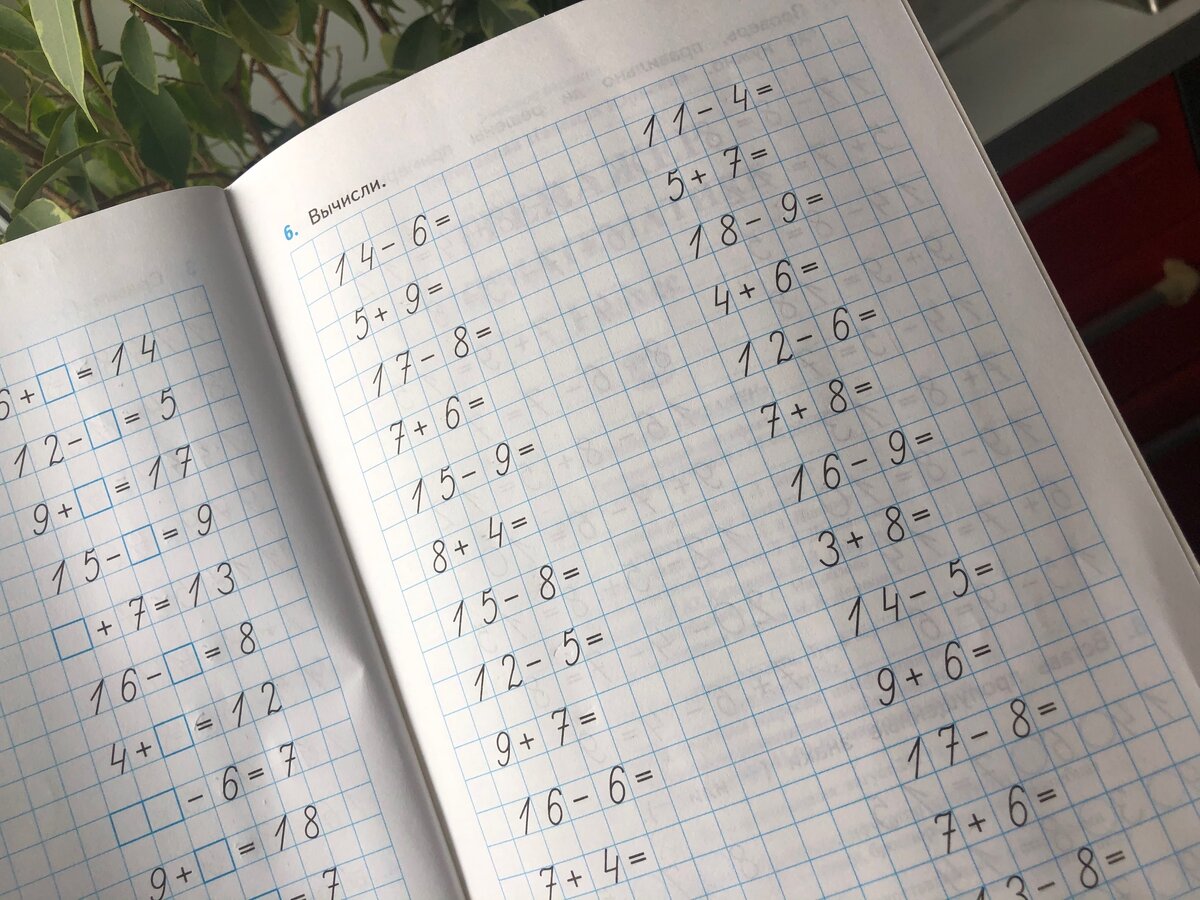 6 + □ = 14
12 - □ = 5
9 + □ = 17
15 - □ = 9
□ + 7 = 13
16 - □ = 8
4 + □ = 12
□□ - 6 = 7
9 + □ = 18
= 7
6. Вычисли.
14 - 6 =
5 + 9 =
17 - 8 =
7 + 6 =
15 - 9 =
8 + 4 =
15 - 8 =
12 - 5 =
9 + 7 =
16 - 6 =
7 + 4 =
11 - 4 =
5 + 7 =
18 - 9 =
4 + 6 =
12 - 6 =
7 + 8 =
16 - 9 =
3 + 8 =
14 - 5 =
9 + 6 =
17 - 8 =
7 + 6 =
13 - 8 =